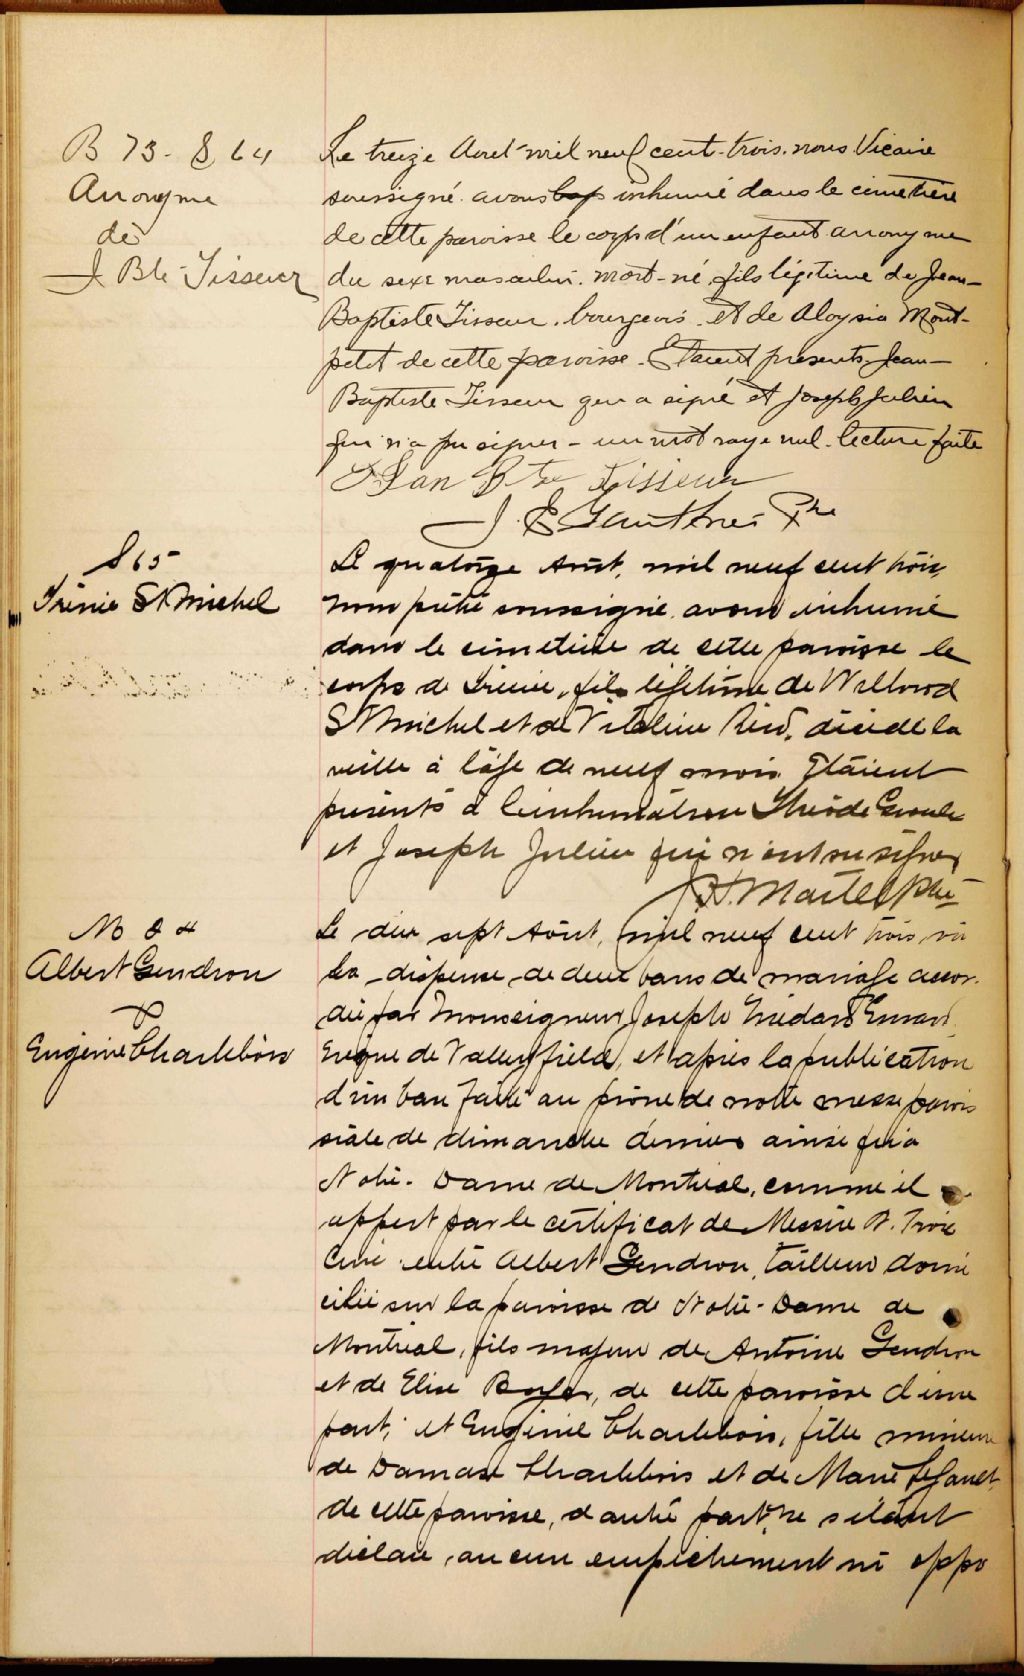 B 73 - S 64
Anonyme
de
J Bte Tisseur
Le treize Aout mil neuf cent trois. nous Vicaire
soussigné avons bap inhumé dans le cimetière
de cette paroisse le corps d'un enfant anonyme
du sexe masculin. mort-né fils légitime de Jean-
Baptiste Tisseur. bourgeois. et de Aloysia Mont-
petit de cette paroisse. Etaient presents Jean-
Baptiste Tisseur qui a signé et Joseph Julien
qui n'a pu signer - un mot rayé nul. lecture faite
Jean Bte Tisseur
J. E Gauthier Ptre
S 65
Irénée St Michel
Le quatorze Août, mil neuf cent trois,
nous prêtre soussigné avons inhumé
dans le cimetière de cette paroisse le
corps de Irénée, fils légitime de Willbrod
St Michel et de Vitaline décédé la
veille à l'âge de neuf mois. Etaient
présents à l'inhumation
et Joseph Julien qui n'ont su signer
Martel Ptre
M 24
Albert Gendron
&
Eugénie Charlebois
Le dix sept Août, mil neuf cent trois vu
la dispense de deux bans de mariage accor-
dée par Monseigneur Joseph Médard Emard
Evêque de Valleyfield, et après la publication
d'un ban faite au prône de notre messe parois
siale de dimanche dernier ainsi qu'à
Notre-Dame de Montréal, comme il
appert par le certificat de Messire N. Troie
Curé entre Albert Gendron, tailleur domi
cilié sur la paroisse de Notre-Dame de
Montréal, fils majeur de Antoine Gendron
et de Elise Boyer, de cette paroisse d'une
part; et Eugénie Charlebois, fille mineure
de Damase Charlebois et de Marie Legault,
de cette paroisse, d'autre part, ne s'étant
déclaré aucun empêchement ni oppo